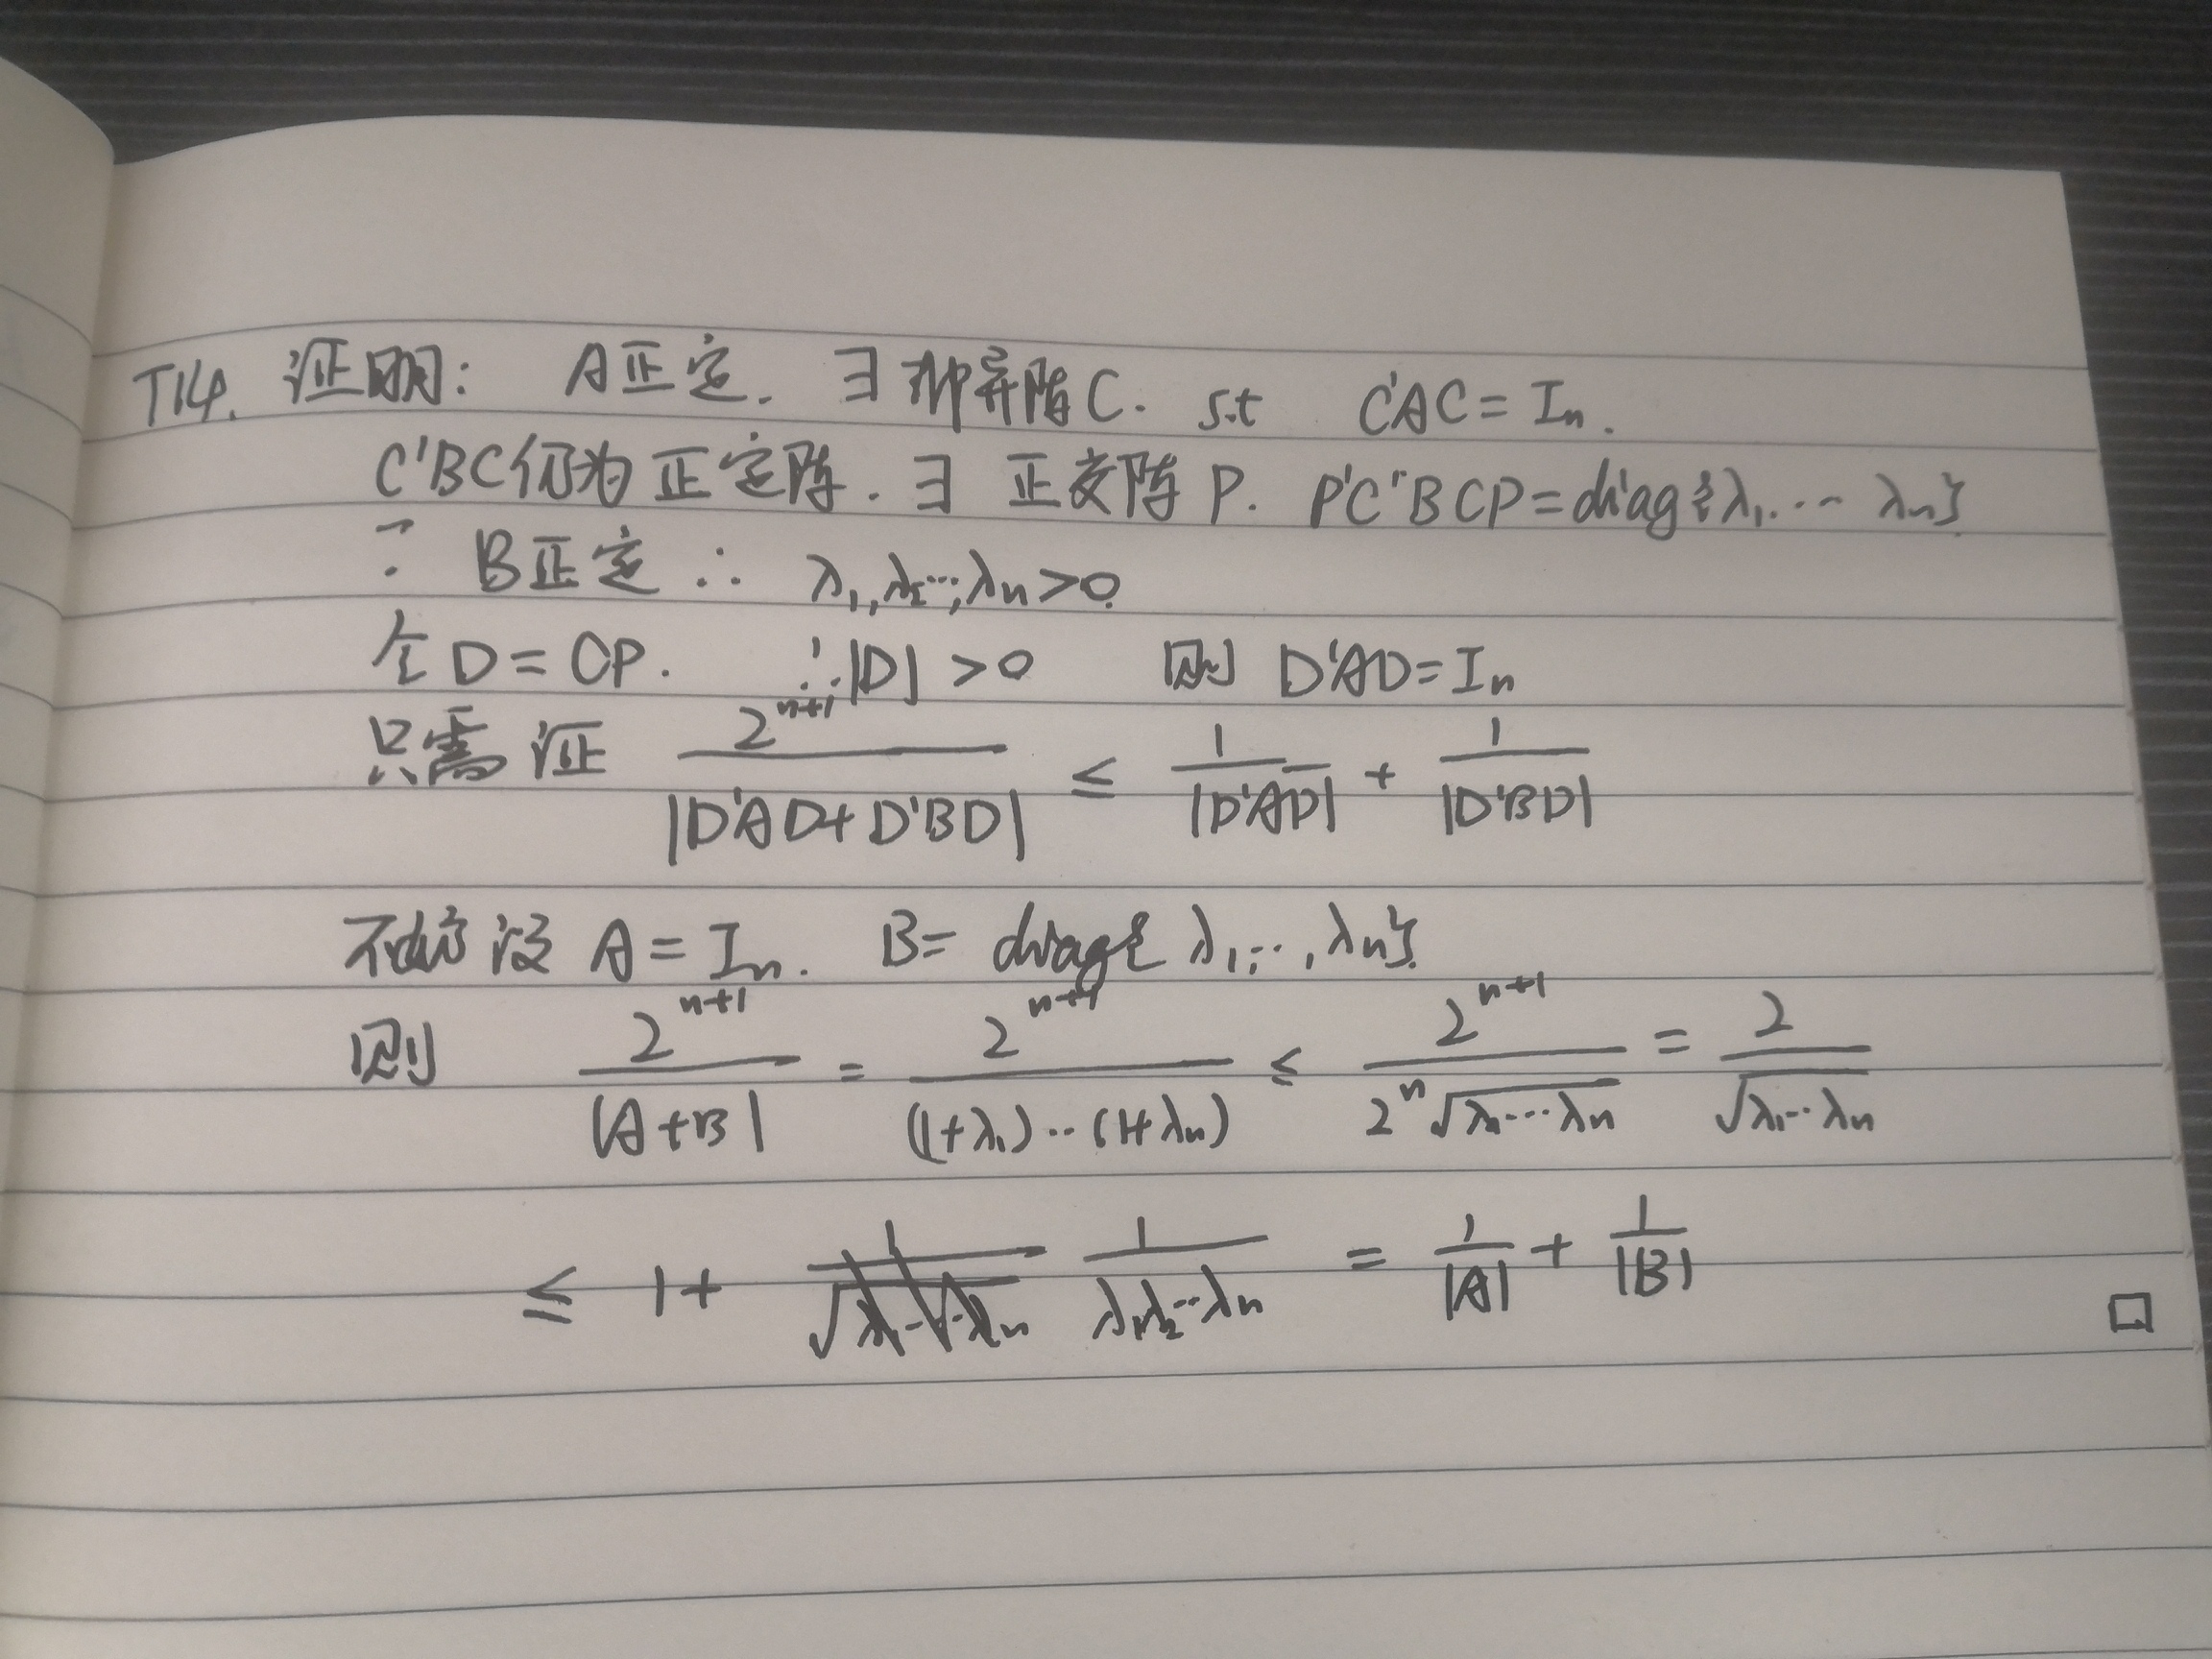 T14. 证明: A正定. ∃ 非异阵C. s.t C'AC = Iₙ.
C'BC仍为正定阵. ∃ 正交阵 P. P'C'BCP = diag{λ₁.... λₙ}
∵ B正定 ∴ λ₁,λ₂...,λₙ>0
令 D = CP. ∴|D| >0 则 D'AD = Iₙ
只需证 2^{n+1}/|D'AD+D'BD| ≤ 1/|D'AD| + 1/|D'BD|
不妨设 A = Iₙ. B = diag{λ₁,...,λₙ}.
则 2^{n+1}/|A+B| = 2^{n+1}/((1+λ₁)...(1+λₙ)) ≤ 2^{n+1}/(2ⁿ√(λ₁...λₙ)) = 2/√(λ₁...λₙ)
≤ 1 + 1/(λ₁λ₂...λₙ) = 1/|A| + 1/|B| □